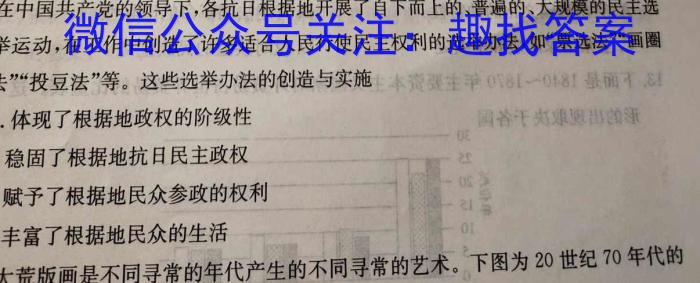 在中国共产党的领导下,各抗日根据地开展了自下而上的、普遍的、大规模的民主选
微信公众号关注:趣找答案
举运动,在工作中创造了许多适合人民行使民主权利的选举办法,如"票选法""画圈
法""投豆法"等。这些选举办法的创造与实施
.体现了根据地政权的阶级性
稳固了根据地抗日民主政权
赋予了根据地民众参政的权利
丰富了根据地民众的生活
大荒版画是不同寻常的年代产生的不同寻常的艺术。下图为20世纪70年代的